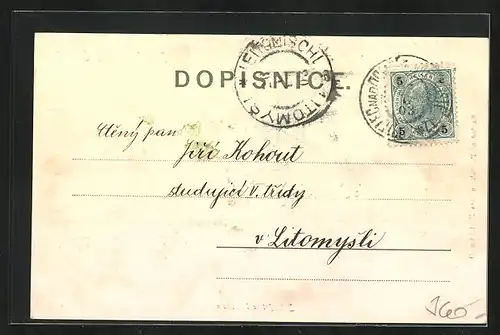 DOPISNICE.
LEITOMISCHL
LITOMYŠL
5 5
5 5
Ctěný pan
Jiří Kohout
studující V. třídy
v Litomyšli